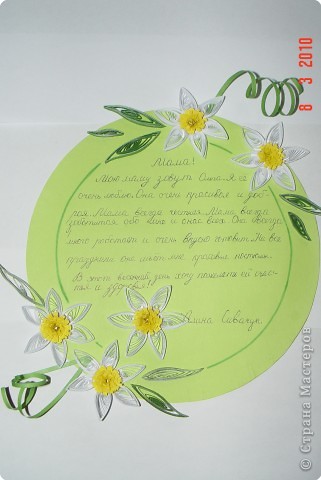 Мама!
Мою маму зовут Я её
очень люблю. Она очень красивая и доб-
рая. Мама всегда Мама всегда
заботится обо мне и о нас всех. Она много
работает и очень вкусно готовит. На все
праздники она мне красивые
В этот весенний день хочу пожелать ей счас-
тья и здоровья!
Савчук
8 3 2010
© Страна Мастеров